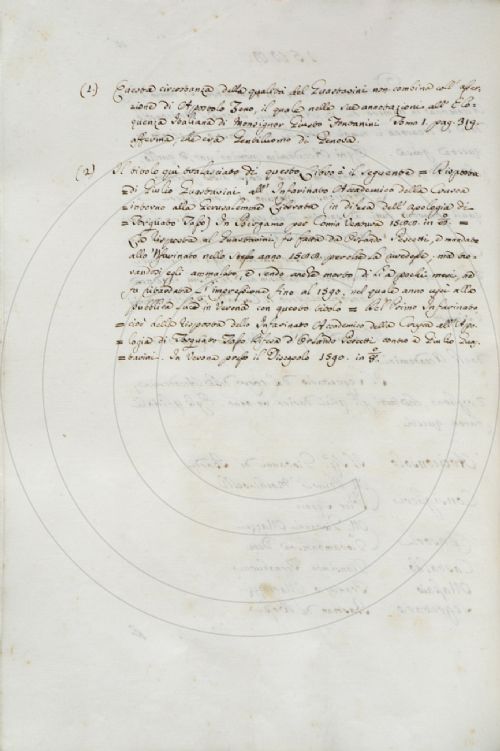 (1.) Questa circostanza della qualità del Guastavini non combina coll' asser-
zione di Apostolo Zeno, il quale nelle sue annotazioni all' Elo-
quenza Italiana di Monsignor Giusto Fontanini tomo 1. pag. 319.
afferma, che era Gentiluomo di Genova.
(2.) Il titolo qui tralasciato di questo Libro è il seguente = Risposta
= di Giulio Guastavini all' Infarinato Accademico della Crusca
= intorno alla Gerusalemme Liberata (in difesa dell' Apologia di
= Torquato Tasso) In Bergamo per Comin Ventura 1588. in 8.°
= La Risposta al Guastavini fu fatta da Orlando Pescetti, e mandata
allo Infarinato nello stesso anno 1588. perchè la vedesse, ma tro-
vandosi egli ammalato, ed essendo morto di lì a pochi mesi, ne
fu ritardata l' impressione fino al 1590. nel quale anno uscì alla
pubblica luce in Verona con questo titolo = Del Primo Infarinato
= cioè della Risposta dello Infarinato Accademico della Crusca all' Apo-
= logia di Torquato Tasso difesa d' Orlando Pescetti contro a Giulio Gua-
= stavini. In Verona presso il Discepolo 1590. in 8.°